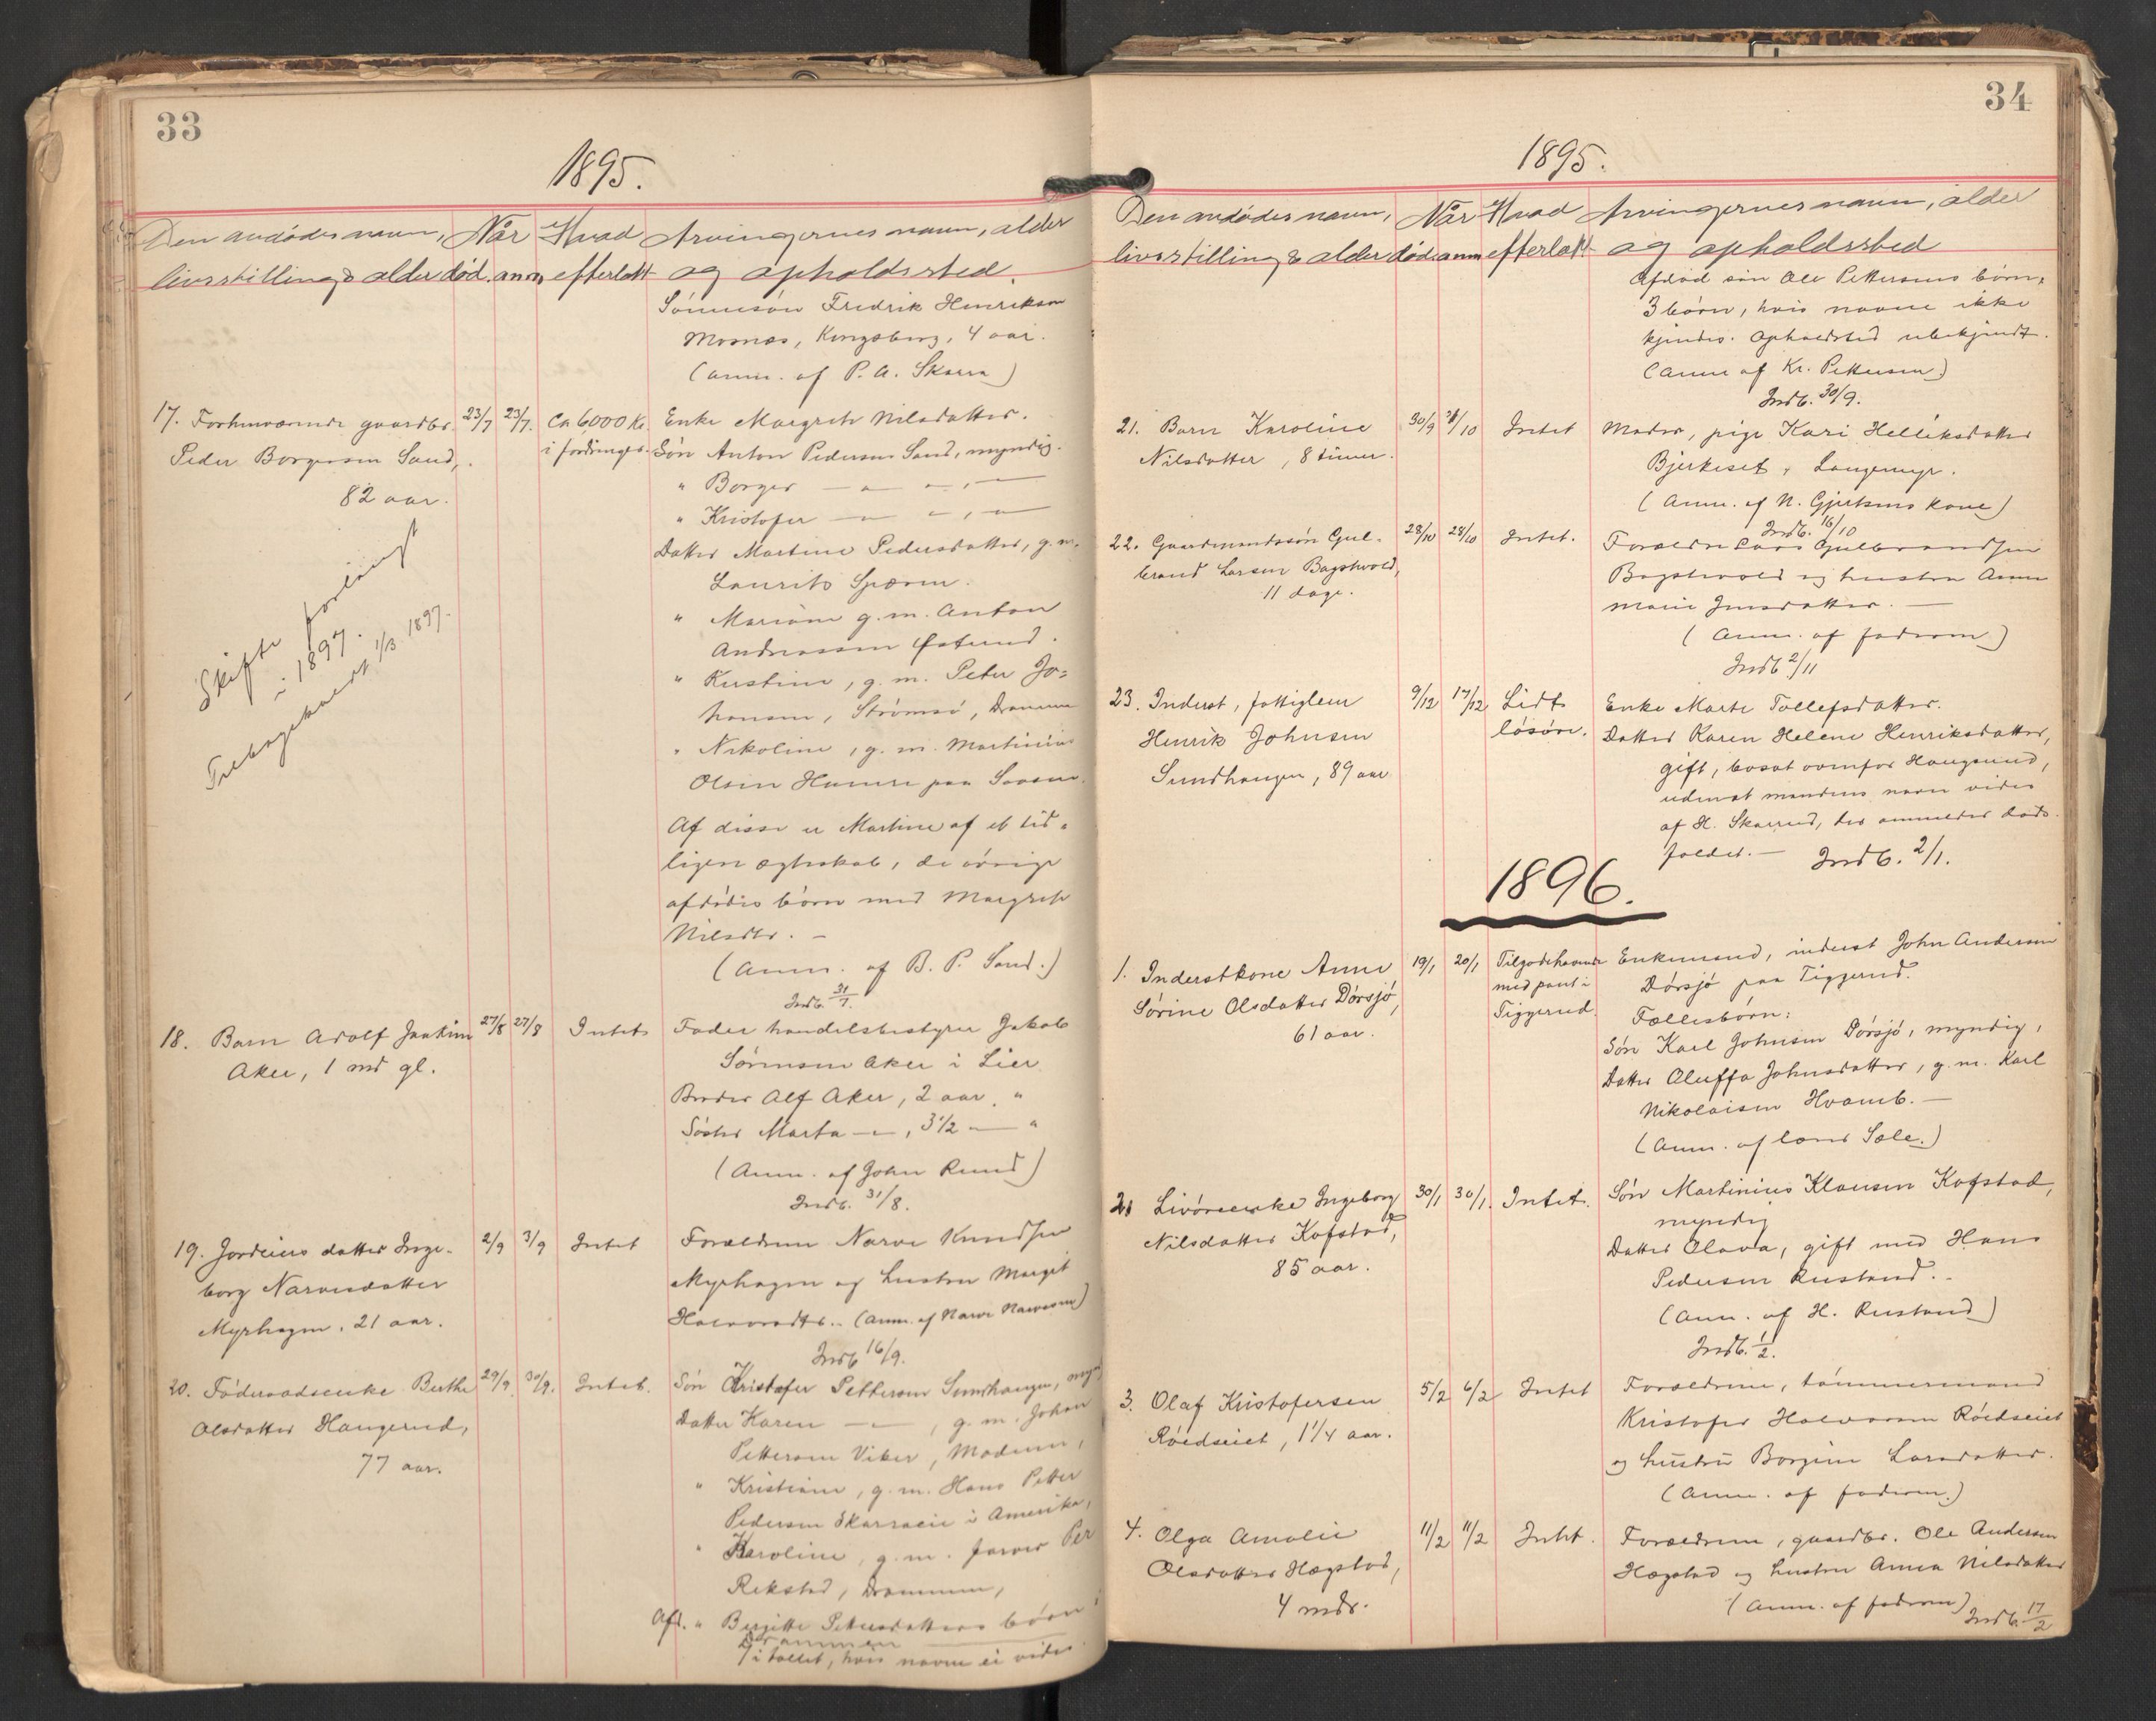 33
1895.
Den avdødes navn, Når Hvad Arvingernes navn, alder
livsstilling & alder død. anm. efterlatt og opholdssted
Sønnesøn Fredrik Henriksen
Mosnæs, Kongsberg, 4 aar.
(anm. af P. A. Skarra)
17. Forhenværende gaardbr. 23/7 23/7. Ca 6,000 Kr. Enke Margrete Nilsdatter.
Peder Borgersen Sand, i fordringer. Søn Anton Pedersen Sand, myndig.
82 aar. " Borger — " — " , — "
" Kristofer — " — " , — "
Datter Martine Pedersdatter, g. m.
Laurits Speren.
" Mariane g. m. Anton
Andreassen Østund.
" Kristine, g. m. Peter Jo-
hansen, Strømsø, Drammen
" Nikoline, g. m. Martinius
Olsen Hamre paa Saasen.
Skifte forlangt
i 1897.
Tilbagekaldt 1/3 1897.
Af disse er Martine af et tid-
ligere ægteskab, de øvrige
afdødes børn med Margrete
Nilsdtr. —
(Anm. af B. P. Sand.)
Indb. 31/7.
18. Barn Adolf Joakim 27/8 27/8 Intet Fader handelsbestyrer Jakob
Aker, 1 md gl. Sørensen Aker i Lier
Broder Alf Aker, 2 aar, "
Søster Marta — " —, 3 1/2 — "
(Anm. af John Ruud)
Indb. 31/8.
19. Jordeiers datter Inge- 2/9 3/9 Intet Forældrene Narve Knudsen
borg Narvesdatter Myrhagen og hustru Margit
Myrhagen. 21 aar. Halvorsdtr. (Anm. af Narve Narvesen)
Indb 16/9.
20. Føderaadsenke Berthe 29/9. 30/9. Intet. Søn Kristofer Pettersen Sundhaugen, mynd.
Olsdatter Haugerud, Datter Karen — " —, g. m. Johan
77 aar. Pettersen Viker, Modum,
" Kristiane, g. m. Hans Petter
Pedersen Skarraeie i Amerika,
" Karoline, g. m. farver Per
Rekstad, Drammen,
Afd. " Birgitte Pettersdatters børn i
Drammen
7 i tallet, hvis navne ei vides.
34
1895.
Den avdødes navn, Når Hvad Arvingernes navn, alder
livsstilling & alder død. anm efterlatt og opholdssted
Afdød søn Ole Pettersens børn,
3 børn, hvis navne ikke
kjendes. Opholdsted ubekjendt.
(Anm af Kr. Pettersen)
Indb. 30/9.
21. Barn Karoline 30/9 /10 Intet Moder, pige Kari Helliksdatter
Nilsdatter, 8 timer. Bjerkeset, Langemyr.
(Anm. af N. Gjertsens kone)
Indb. 16/10
22. Gaardmandssøn Gul- 28/10 28/10 Intet. Forældre Lars Gulbrandsen
brand Larsen Bagstevold, Bagstevold og hustru Anne
11 dage. Marie Jensdatter. —
(Anm. af faderen)
Indb 2/11
23. Inderst, fattiglem 9/12 17/12 Lidt Enke Marte Tollefsdatter.
Henrik Johnsen løsøre. Datter Karen Helene Henriksdatter,
Sundhaugen, 89 aar gift, bosat ovenfor Haugsund,
uden at mandens navn vides
af H. Skarrud, der anmelder døds-
faldet. — Indb. 2/1.
1896.
1. Inderstkone Anne 19/1 20/1 Tilgodehavende Enkemand, inderst John Andersen
Sørine Olsdatter Dørsjø, med pant i Dørsjø paa Tiggerud.
61 aar. Tiggerud. Fællesbørn:
Søn Karl Johnsen Dørsjø, myndig,
Datter Oluffa Johnsdatter, g. m. Karl
Nikolaisen Hvamb. —
(Anm. af lens Sole.)
2. Livøreenke Ingeborg 30/1 30/1. Intet. Søn Martinius Klausen Kofstad,
Nilsdatter Kofstad, myndig
85 aar. Datter Olava, gift med Hans
Pedersen Rustand. -
(Anm. af H. Rustand)
Indb. 1/2.
3. Olaf Kristofersen 5/2 6/2 Intet Forældrene, tømmermand
Røedseiet, 1 1/4 aar. Kristofer Halvorsen Røedseiet
og hustru Borgine Larsdatter.
(Anm. af faderen.)
4. Olga Amalie 11/2 11/2 Intet. Forældrene, gaardbr. Ole Andersen
Olsdatter Hægstad, Hægstad og hustru Anna Nilsdatter
4 mdr. (Anm. af faderen) Indb. 17/2